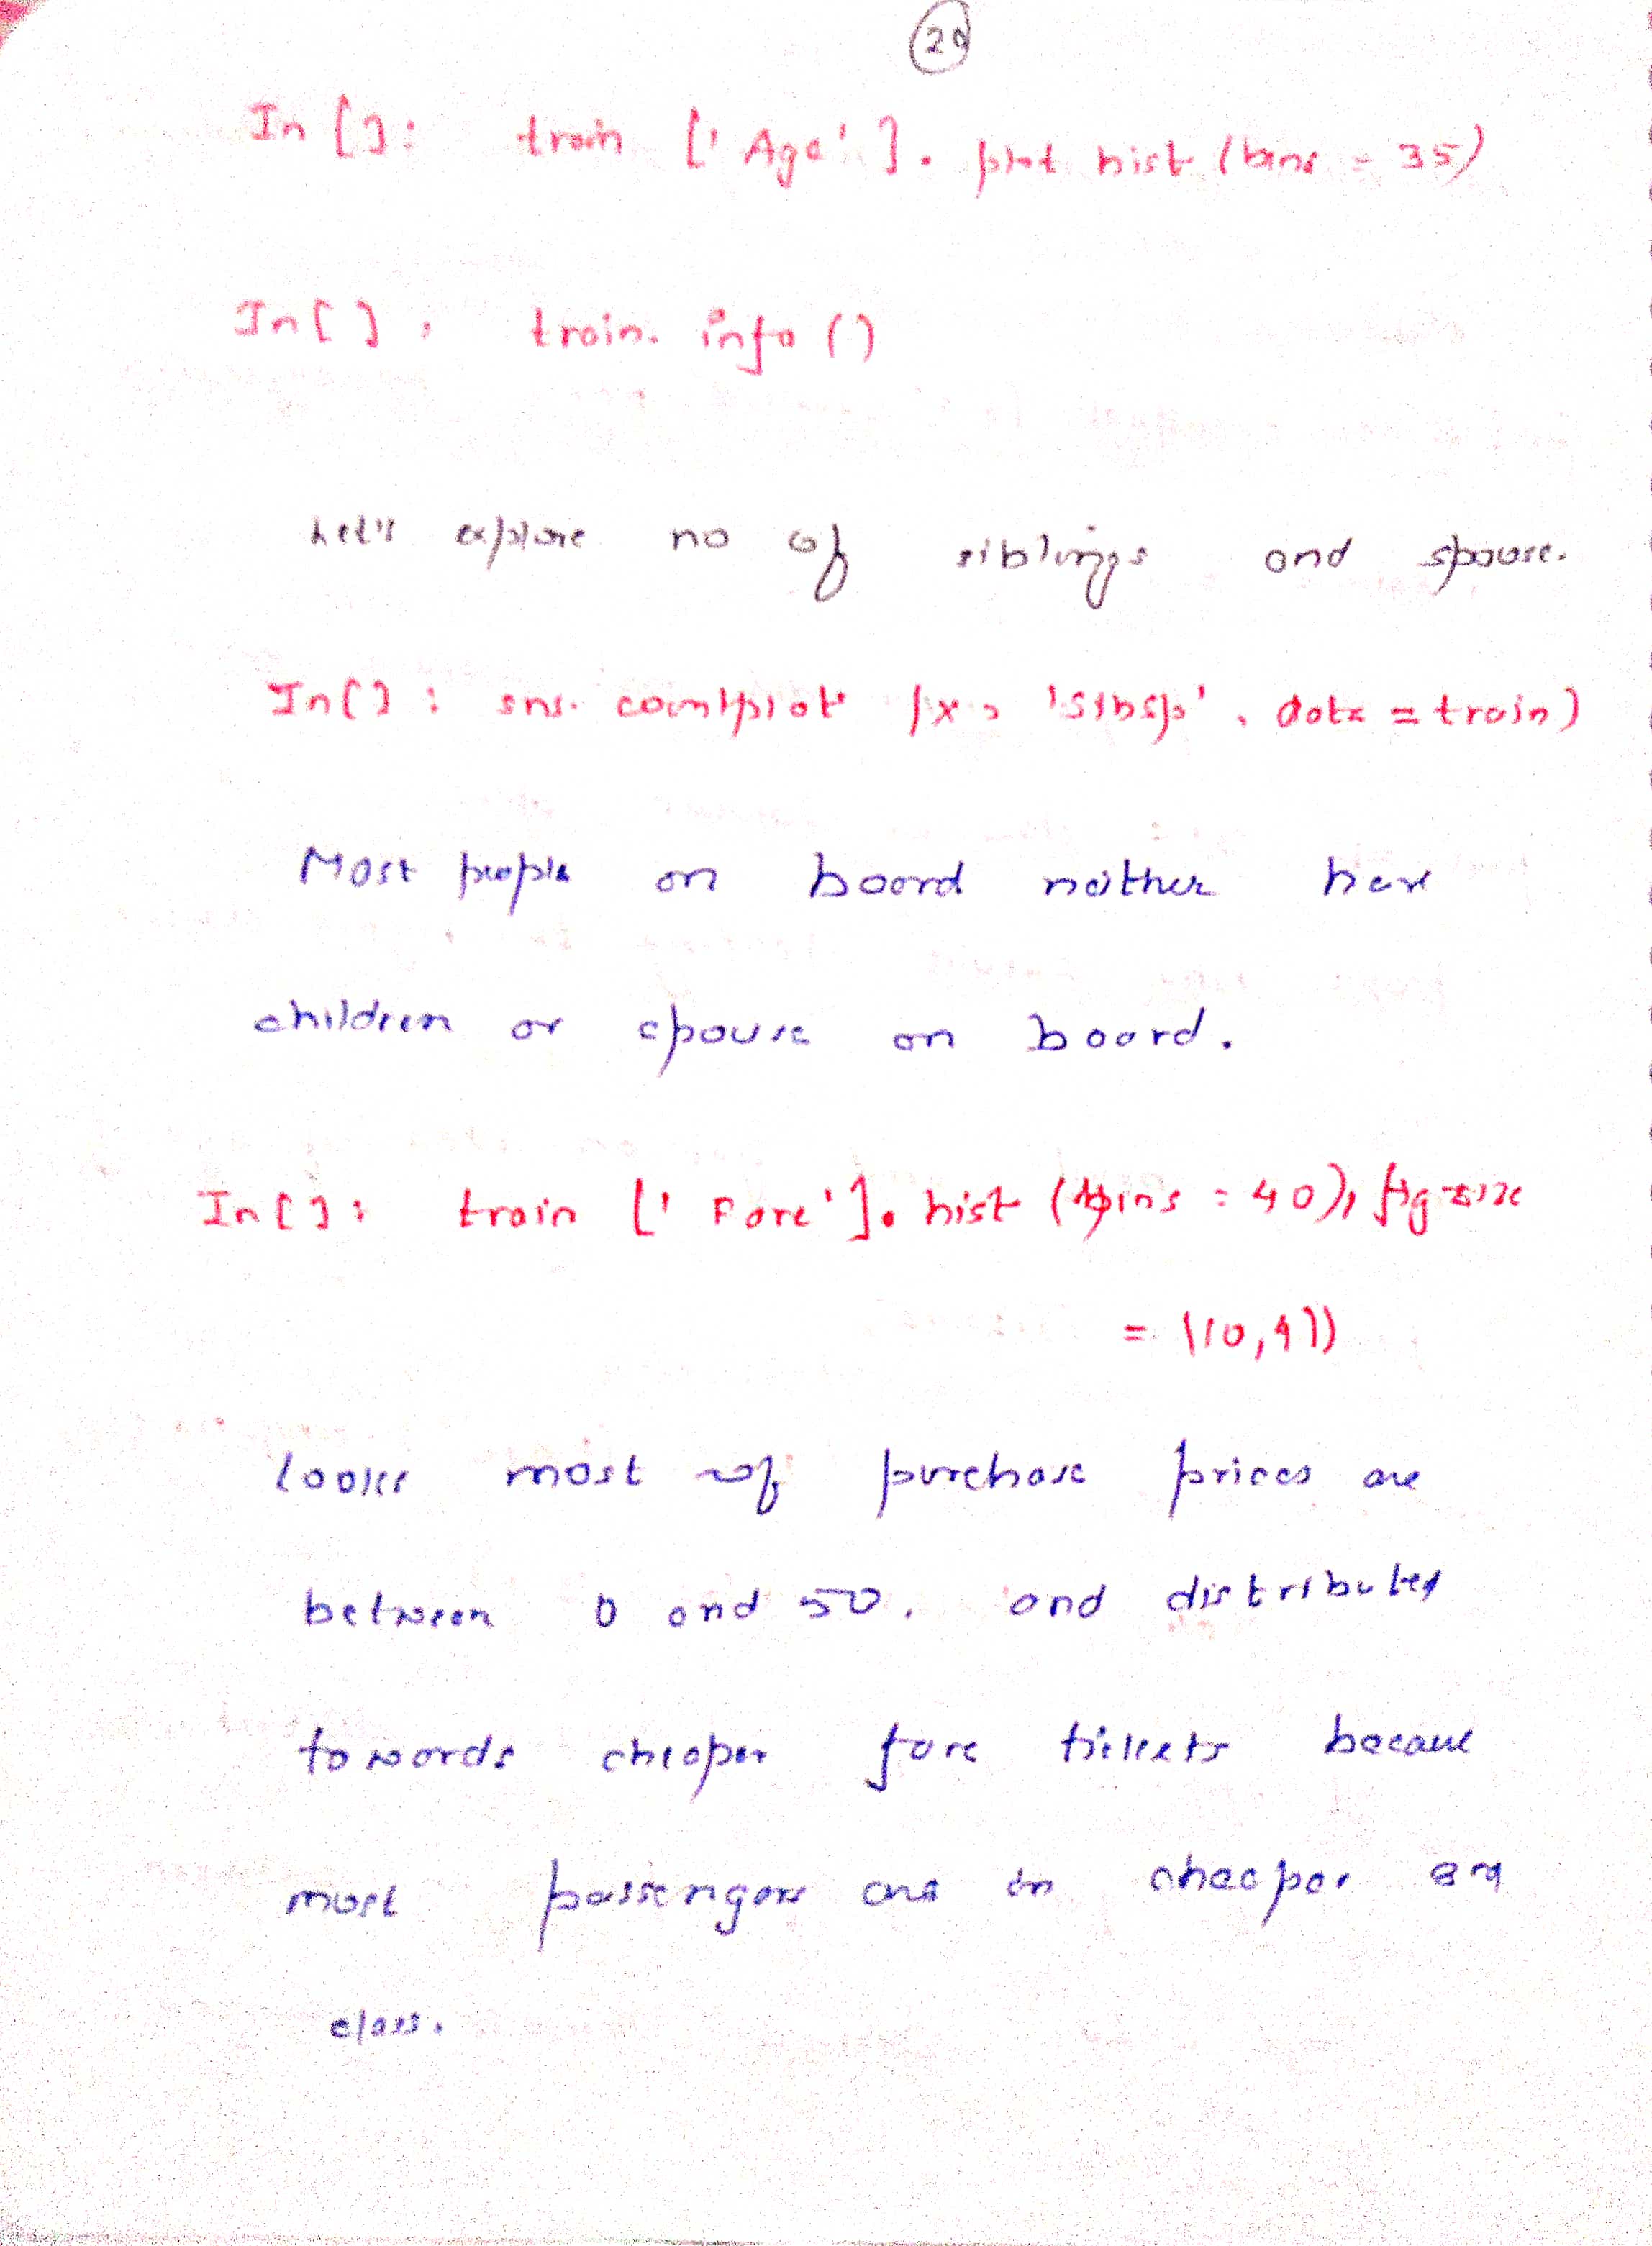 20
In []: train ['Age']. plot hist (bins = 35)
In [] : train. info ()
Let's explore no of siblings and spouse.
In [] : sns. countplot (x = 'Sibsp', data = train)
Most people on board neither have
children or spouse on board.
In [] : train ['Fare']. hist (bins = 40), figsize
= (10,4))
Looks most of purchase prices are
between 0 and 50. and distributed
towards cheaper fare tickets because
most passengers are in cheaper 3rd
class.